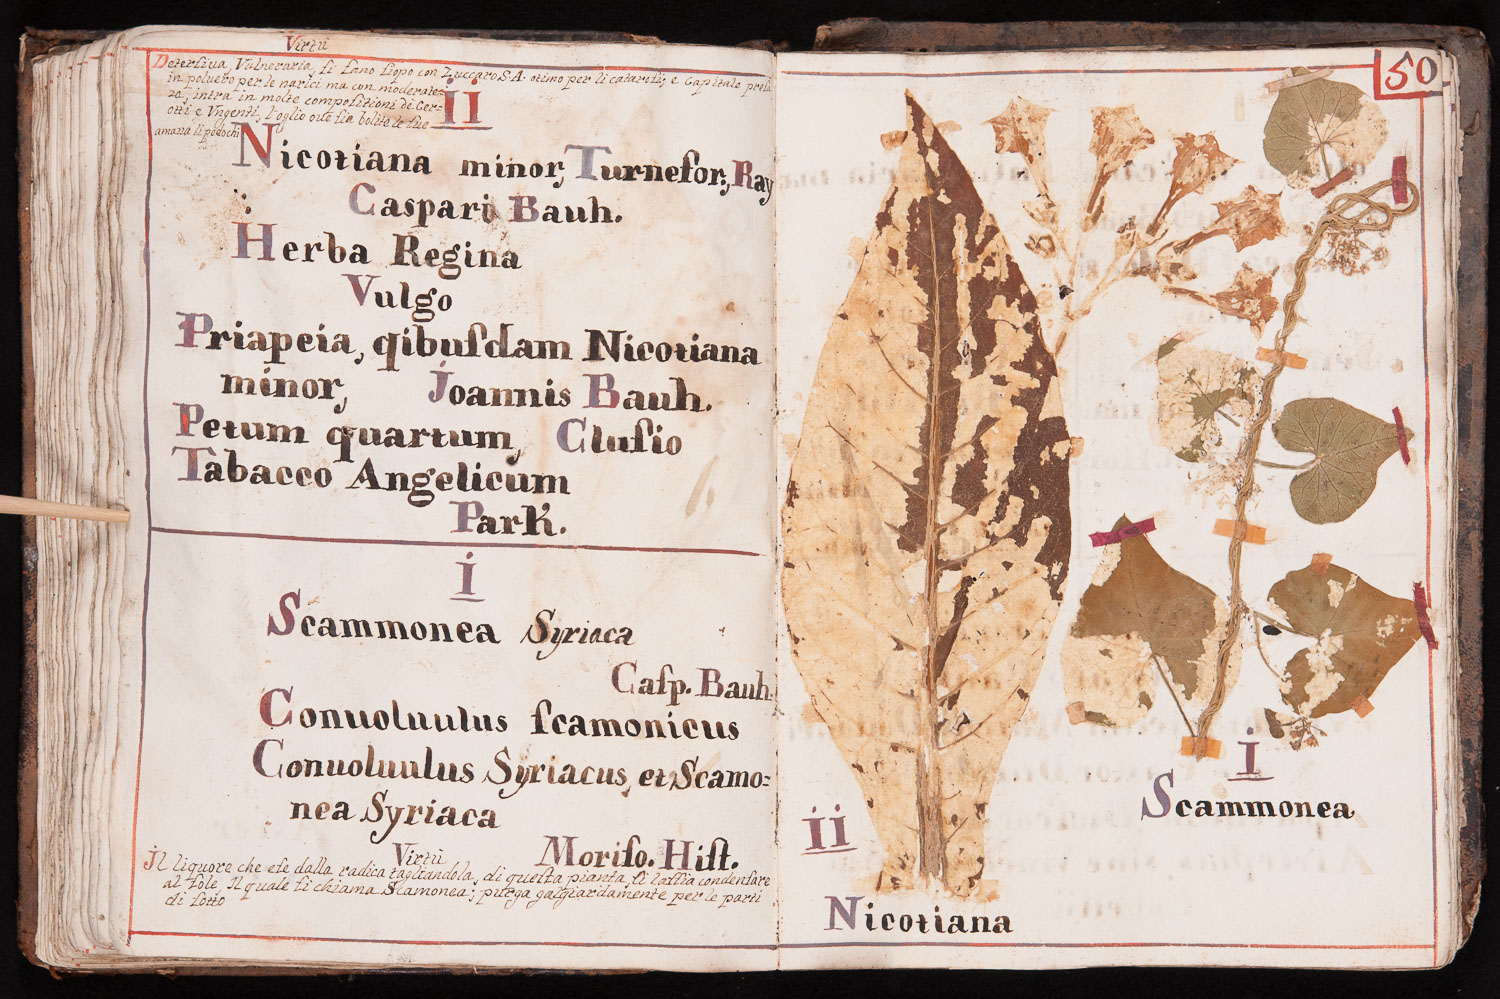 Virtù
Detersiua, Vulneraria, si fano siopo con Zuccaro S.A. otimo per li catarosi; e Capitale presa
in poluere per le narici ma con moderatez=
za, intra in molte compositioni de Cer=
otti e Vngenti, l'oglio oue sia bolite le sue
amaza li pedochi
ii
Nicotiana minor, Turnefor; Ray
Caspari Bauh.
Herba Regina
Vulgo
Priapeia, qibusdam Nicotiana
minor, Joannis Bauh.
Petum quartum, Clusio
Tabacco Angelicum
Park.
i
Scammonea Syriaca
Casp. Bauh.
Conuoluulus scamonicus
Conuoluulus Syriacus, et Scamo=
nea Syriaca
Virtù Moriso. Hist.
il liquore che ese dalla radica tagliandola, di questa pianta, si lassia condensare
al sole, il quale si chiama Scamonea; purga galgiardamente per le parti
di sotto
50
i
Scammonea
ii
Nicotiana